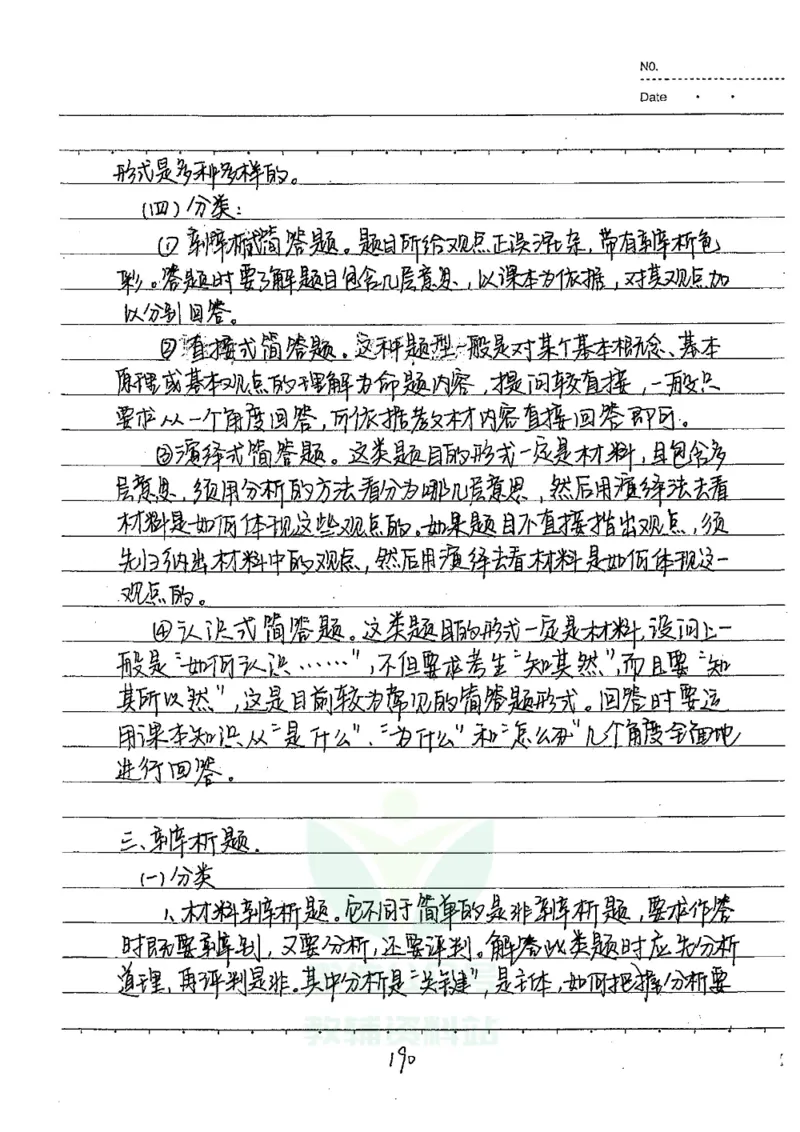 NO.
Date
形式是多种多样的。
(四)分类:
① 辨析式简答题。题目所给观点正误混杂,带有辨析色
彩。答题时要了解题目包含几层意思,以课本为依据,对其观点加
以分别回答。
② 直接式简答题。这种题型一般是对某个基本概念、基本
原理或基本观点的理解为命题内容,提问较直接,一般只
要求从一个角度回答,所依据教材内容直接回答即可。
③演绎式简答题。这类题目的形式一定是材料,且包含多
层意思,须用分析的方法看分为哪几层意思,然后用演绎法去看
材料是如何体现这些观点的。如果题目不直接指出观点,须
先归纳出材料中的观点,然后用演绎去看材料是如何体现这一
观点的。
④认识式简答题。这类题目的形式一定是材料,设问上一
般是“如何认识……”,不但要求考生“知其然”,而且要“知
其所以然”,这是目前较为常见的简答题形式。回答时要运
用课本知识从“是什么”、“为什么”和“怎么办”几个角度全面地
进行回答。
三、辨析题.
(一)分类
1、材料辨析题。它不同于简单的是非辨析题,要求作答
时既要辨别,又要分析,还要评判。解答此类题时应先分析
道理,再评判是非。其中分析是“关键”,是主体,如何把握分析要
教辅资料站
190